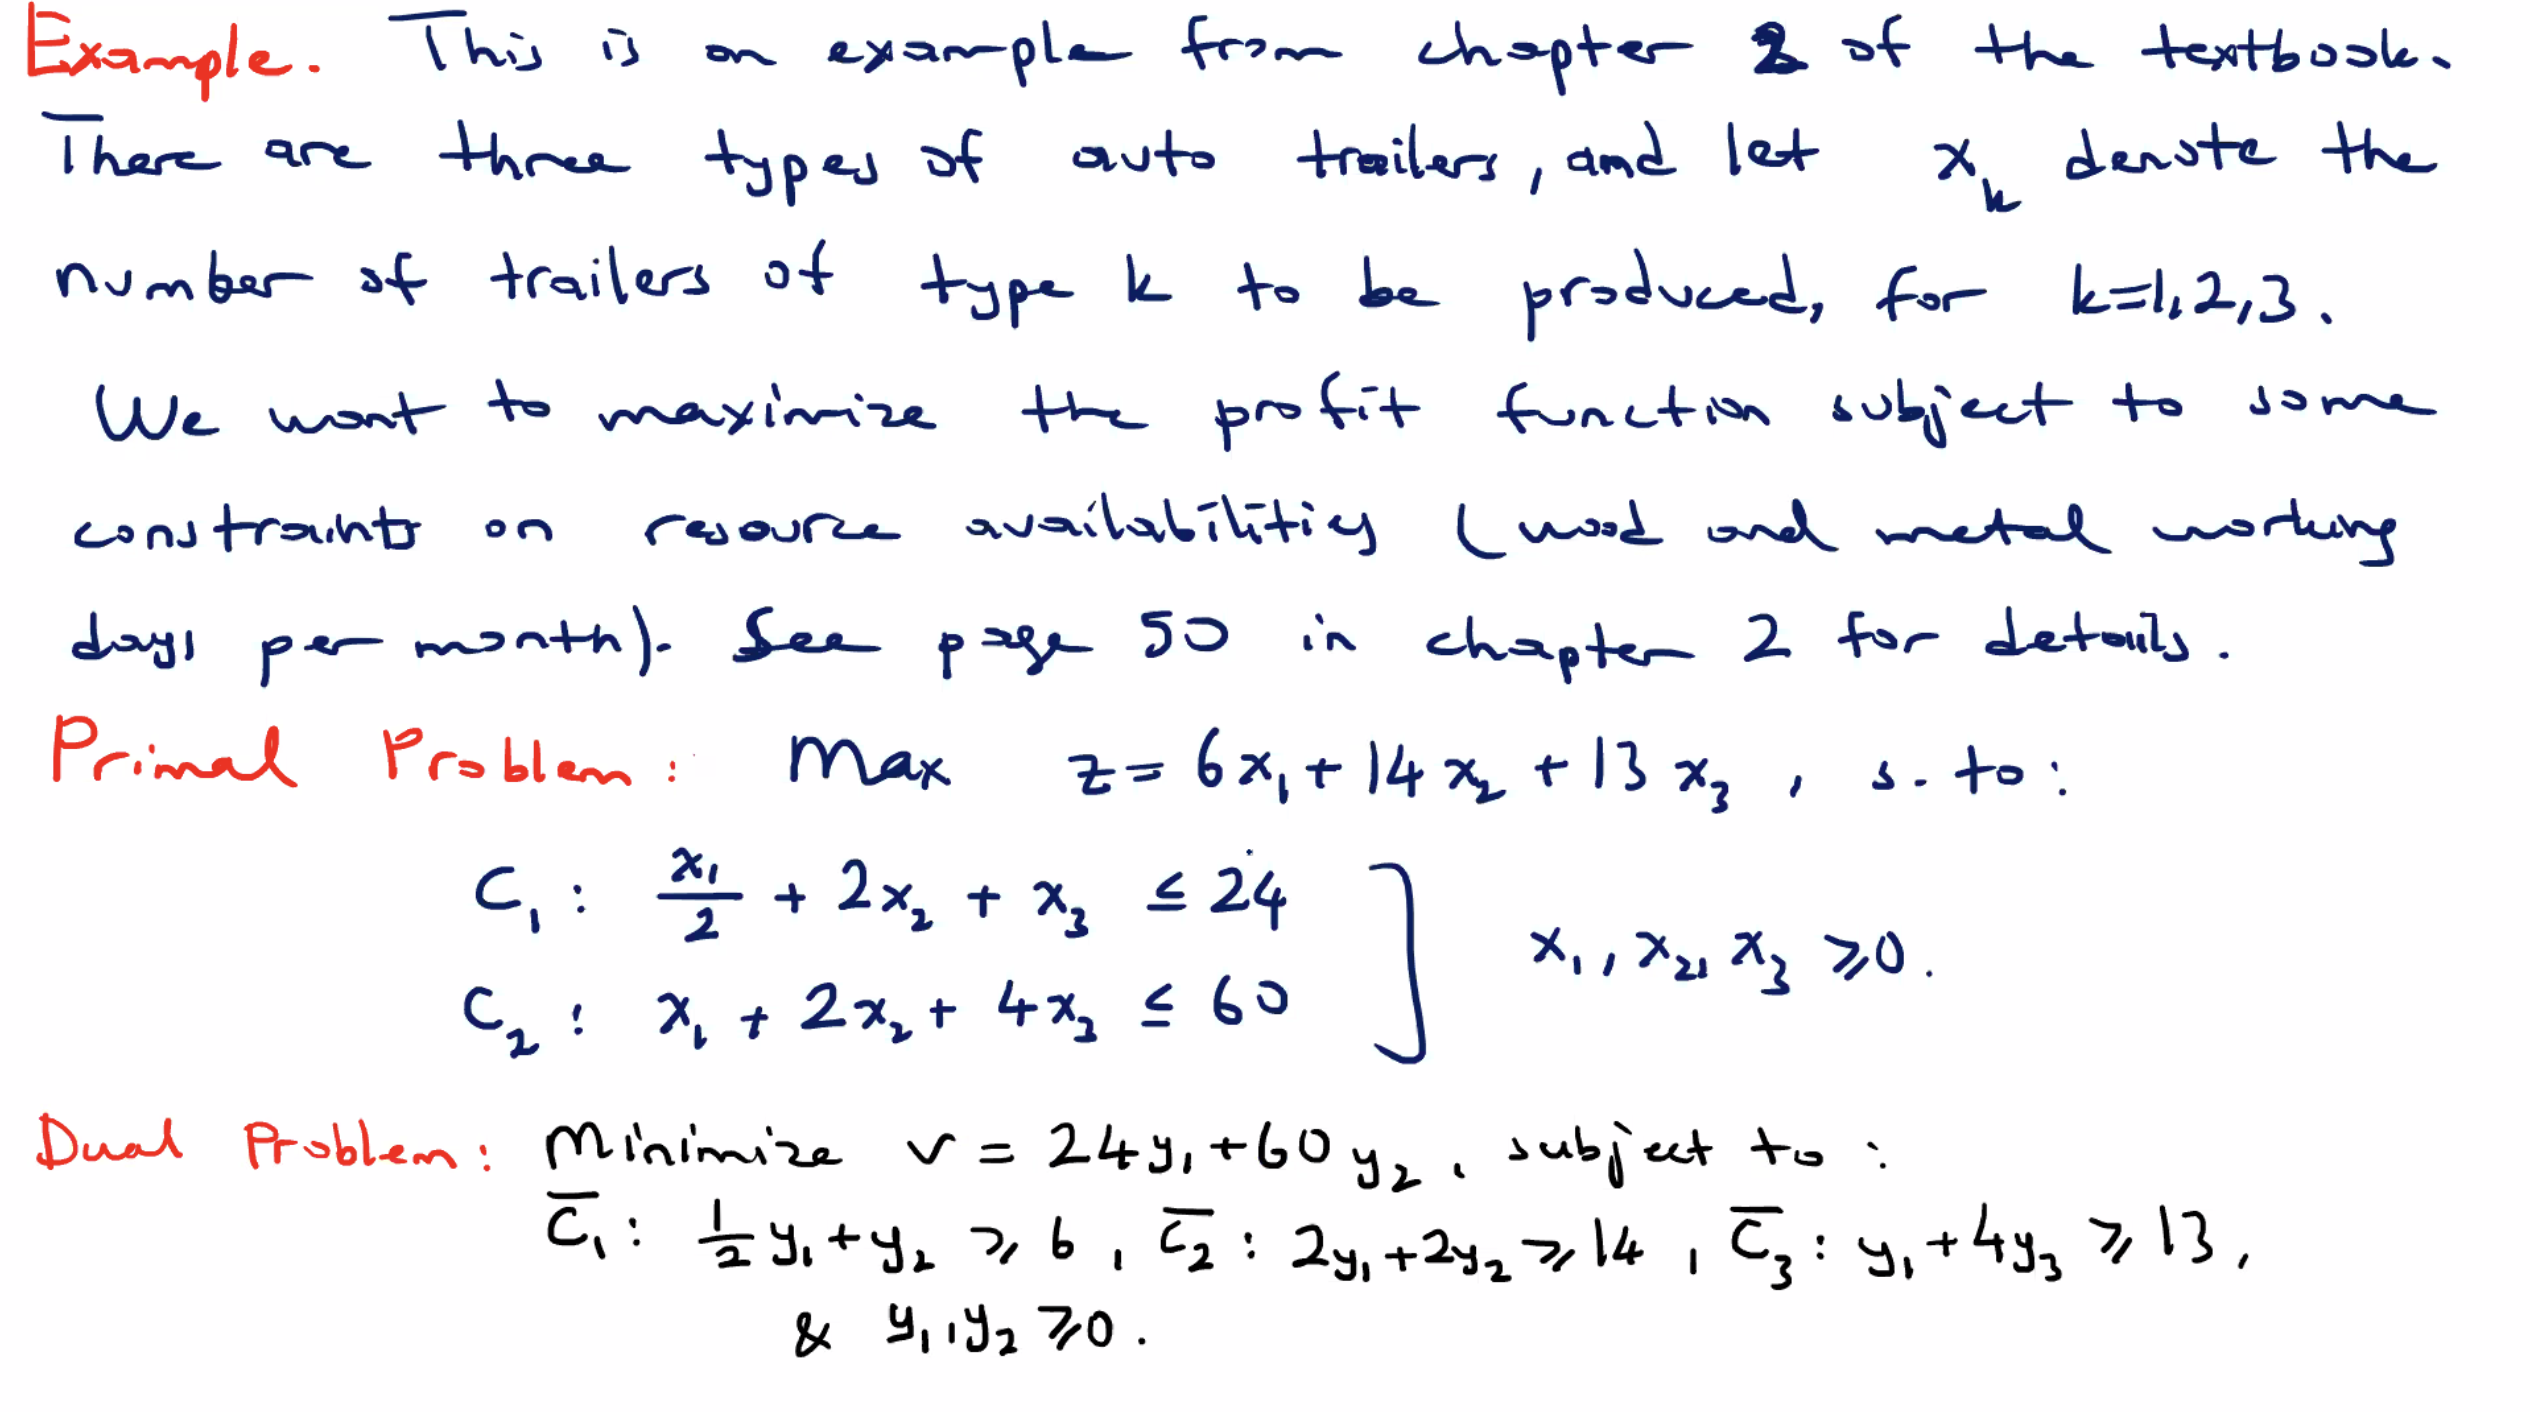 Example. This is an example from chapter 2 of the textbook.
There are three types of auto trailers, and let x_k denote the
number of trailers of type k to be produced, for k=1,2,3.
We want to maximize the profit function subject to some
constraints on resource availabilities (wood and metal working
days per month). See page 50 in chapter 2 for details.
Primal Problem: Max z = 6x₁ + 14x₂ + 13x₃, s. to:
C₁: x₁/2 + 2x₂ + x₃ ≤ 24
x₁, x₂, x₃ ≥ 0.
C₂: x₁ + 2x₂ + 4x₃ ≤ 60
Dual Problem: Minimize v = 24y₁ + 60y₂, subject to:
C̅₁: 1/2 y₁ + y₂ ≥ 6, C̅₂: 2y₁ + 2y₂ ≥ 14, C̅₃: y₁ + 4y₃ ≥ 13,
& y₁, y₂ ≥ 0.